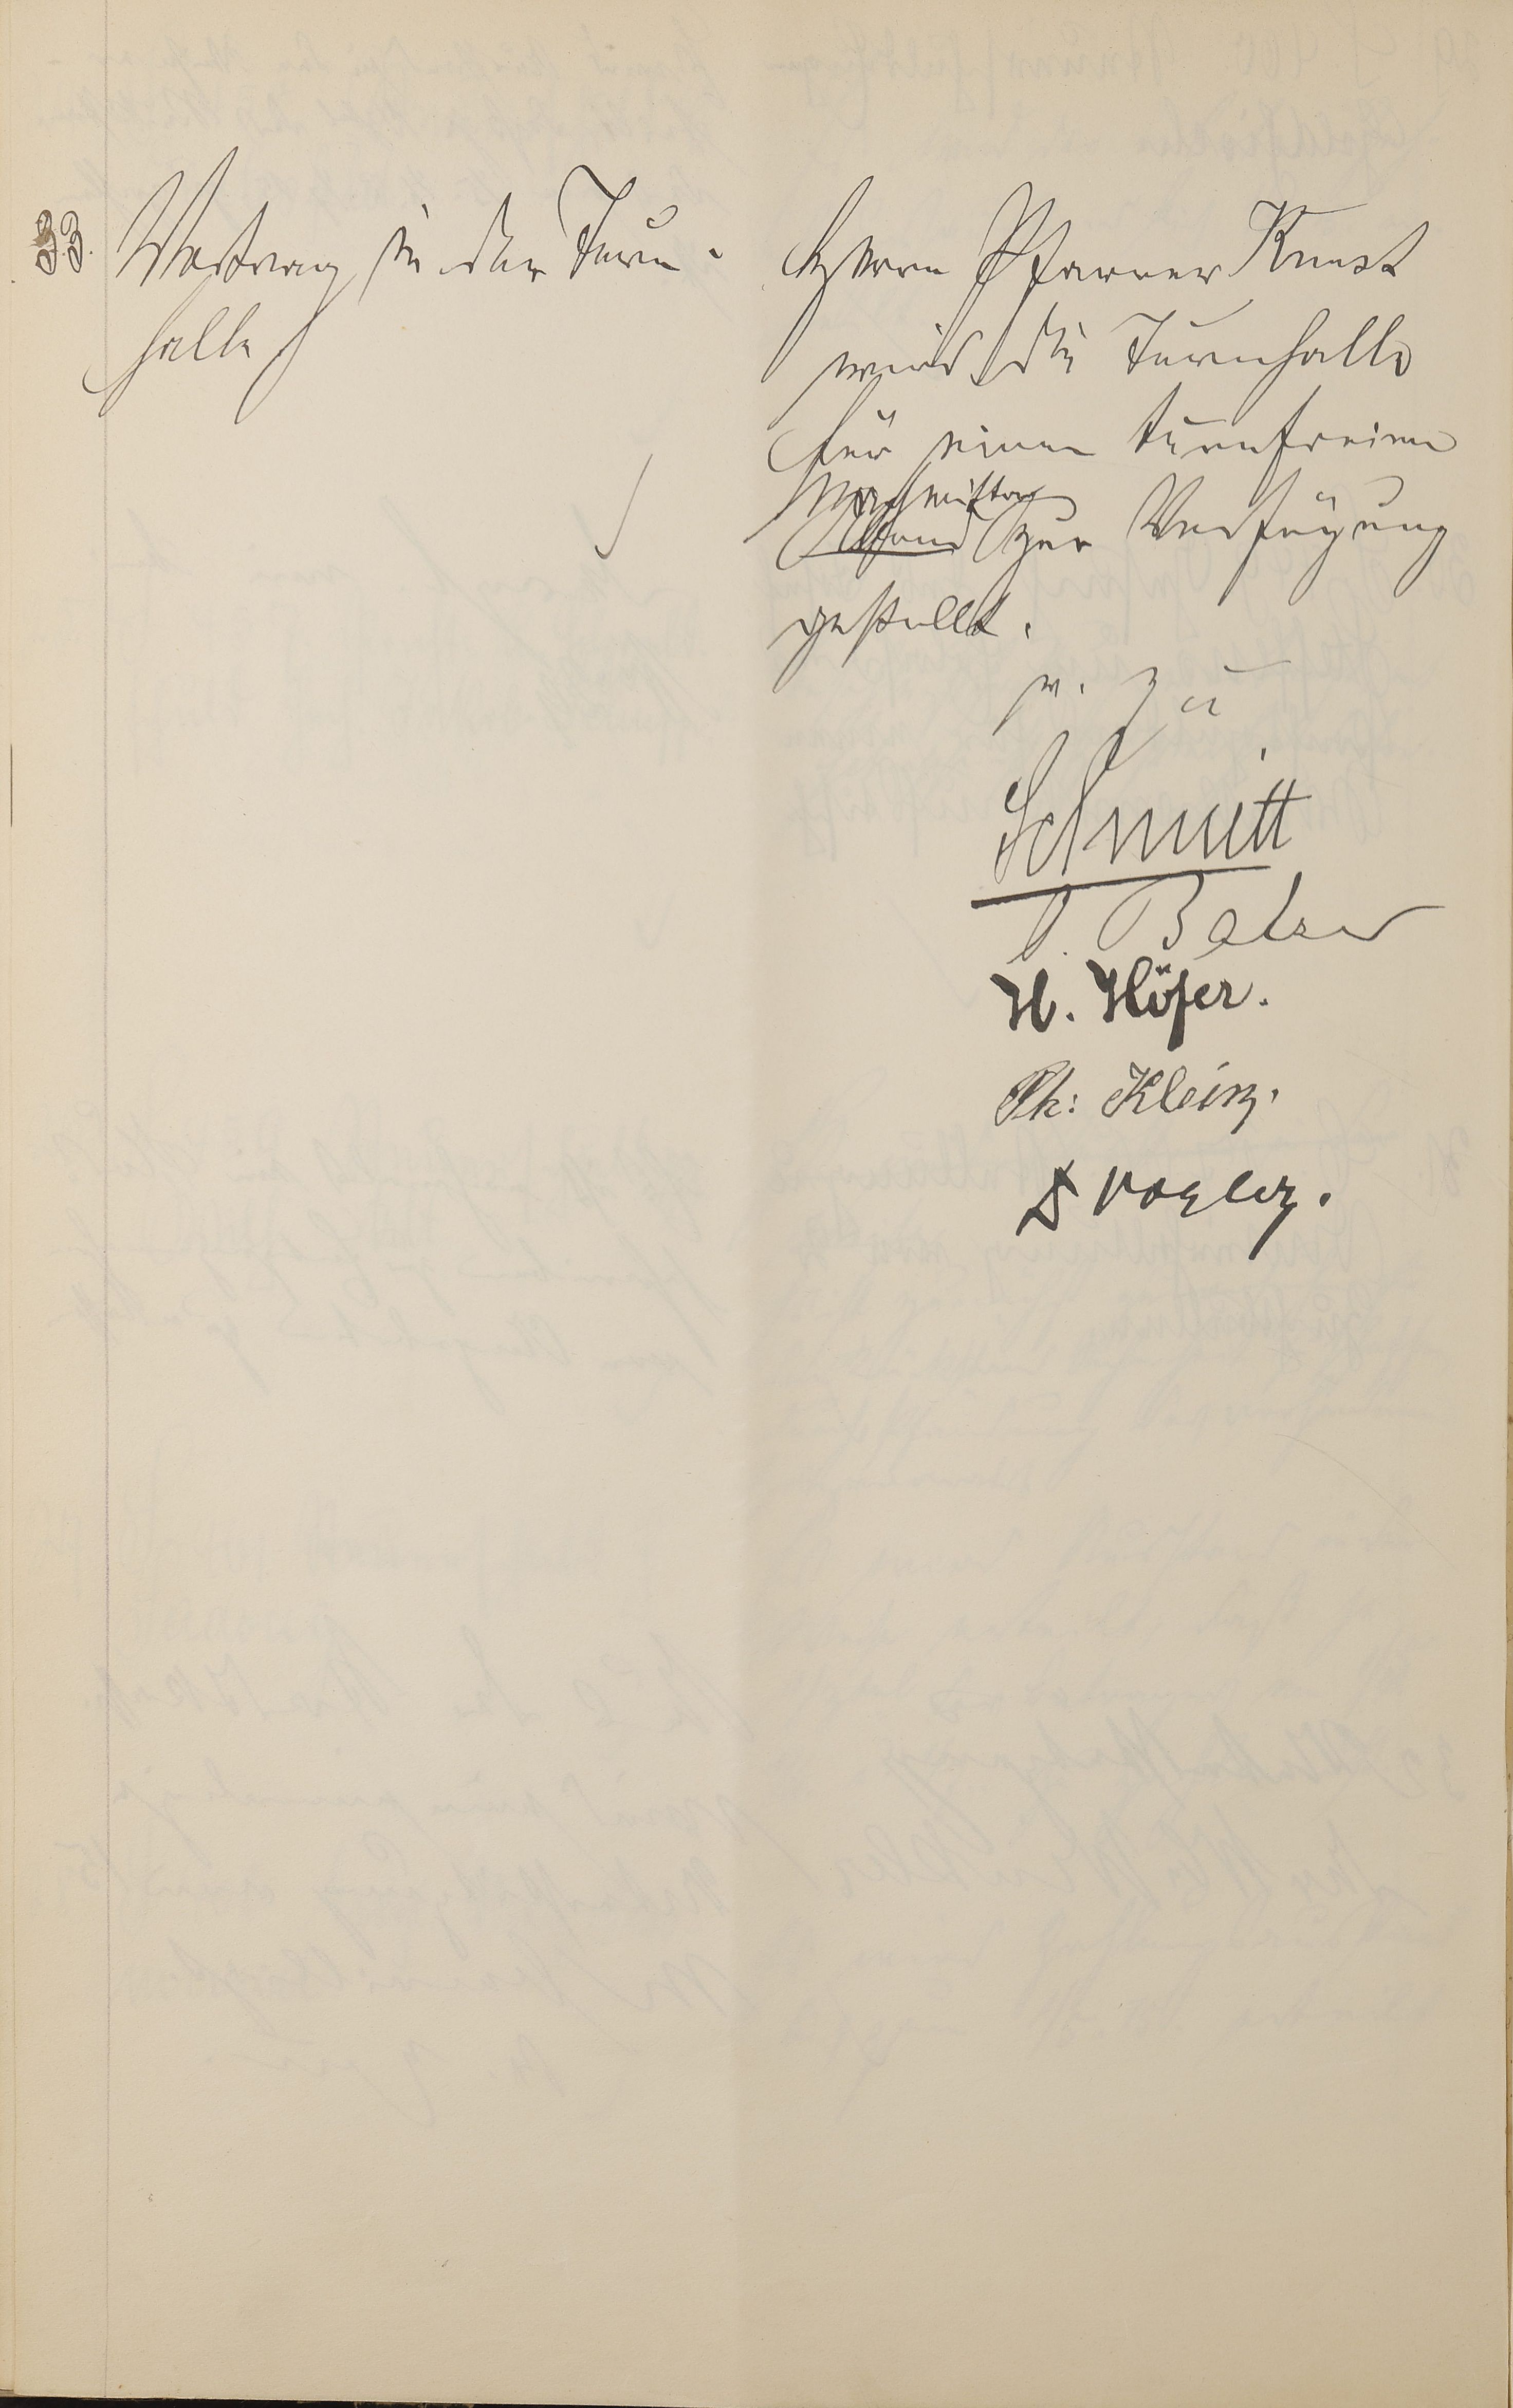 33. Vortrag in der Turn-
halle
Herrn Pfarrer Kunst
wird die Turnhalle
für einen turnfreien
Nachmittag
Abend zur Verfügung
gestellt.
v. g. u.
Schmitt
Balzer
H. Höfer.
Ph: Klein.
Vogler.